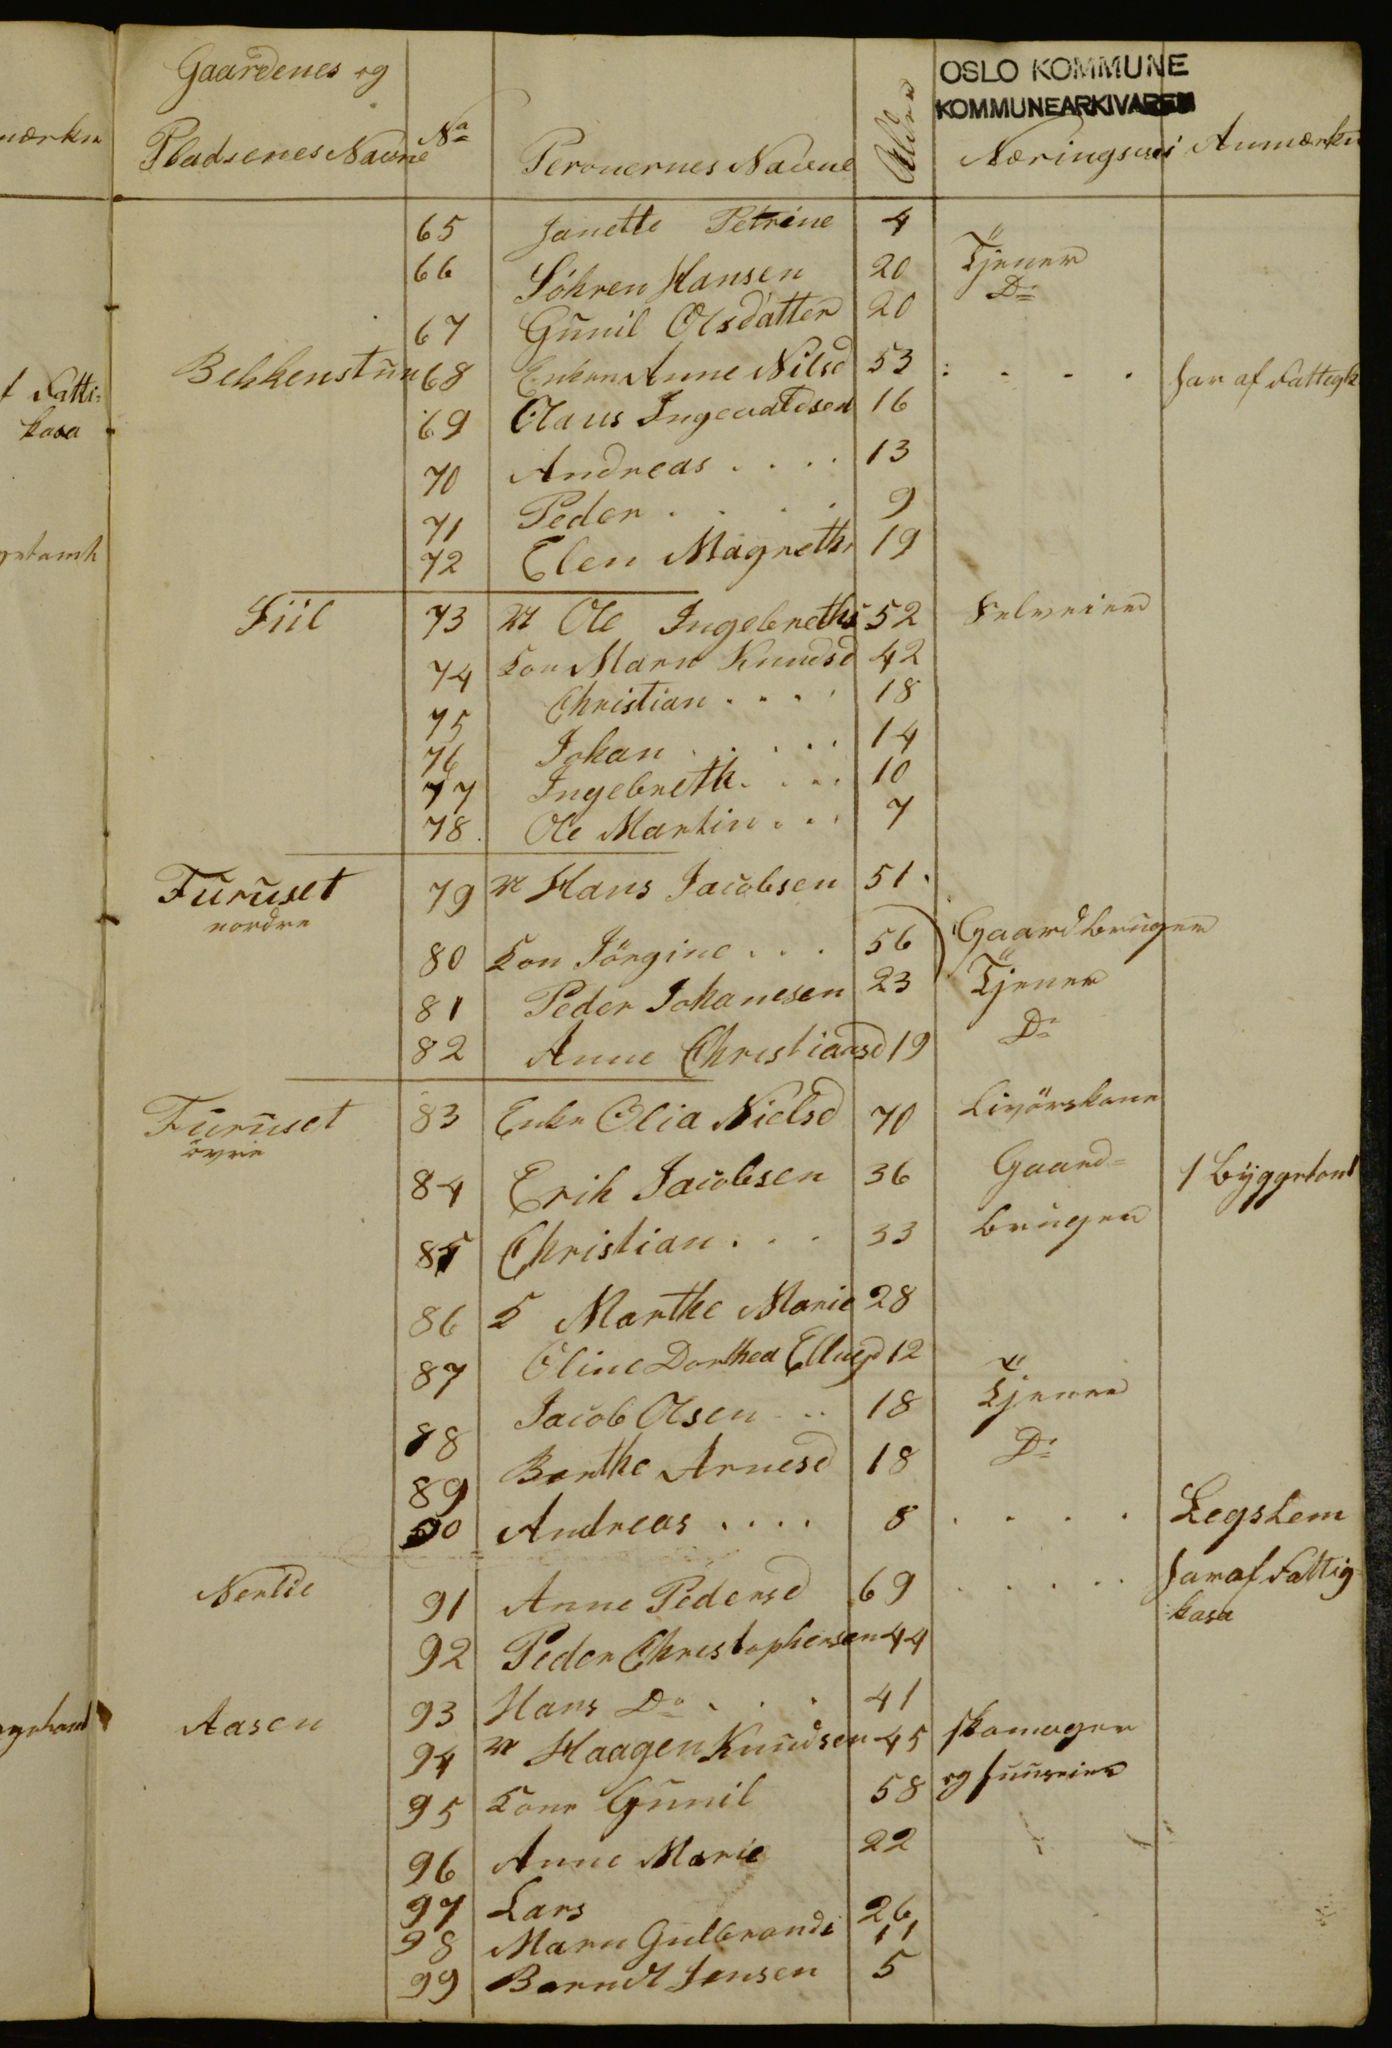 OSLO KOMMUNE
KOMMUNEARKIVAREN
Gaardenes og
Pladsenes Navne No Personernes Navne Alder Næringsvei Anmærkn
65 Janette Petrine 4
66 Söhren Hansen 20 Tjener
67 Gunil Olsdatter 20 Do
Behkenstun 68 Enken Anne Nilsd 53 . . . . har af Fattigk
69 Olaus Ingevaldsen 16
70 Andreas . . . . 13
71 Peder . . . . 9
72 Elen Magrethe 19
Fiil 73 M Ole Ingebreths 52 Selveier
74 Kon Marn Knudsd 42
75 Christian . . . . 18
76 Johan . . . . 14
77 Ingebreth . . . . 10
78 Ole Martin . . . 7
Furuset 79 M Hans Jacobsen 51
nordre
80 Kon Jörgine . . . 56 Gaardbruger
81 Peder Johanesen 23 Tjener
82 Anne Christiansd 19 Do
Furuset 83 Enke Olia Nielsd 70 Livörskone
övrie
84 Erik Jacobsen 36 Gaard= 1 Byggetønd
85 Christian . . . 33 bruger
86 K Marthe Marie 28
87 Oline Dorthea 12
88 Jacob Olsen . . 18 Tjener
89 Berthe Arnesd 18 Do
90 Andreas . . . . 8 . . . . Legslem
Nerlie 91 Anne Pedersd 69 . . . . . har af Fattig
kasa
92 Peder Christophersen 44
Aasen 93 Hans Do . . . 41
94 M Haagen Knudsen 45 Skomager
95 Kone Gunil 58 og huuseier
96 Anne Marie 22
97 Lars 26
98 Marn Gulbrands 11
99 Berndt Jensen 5
f Fatti=
kasa